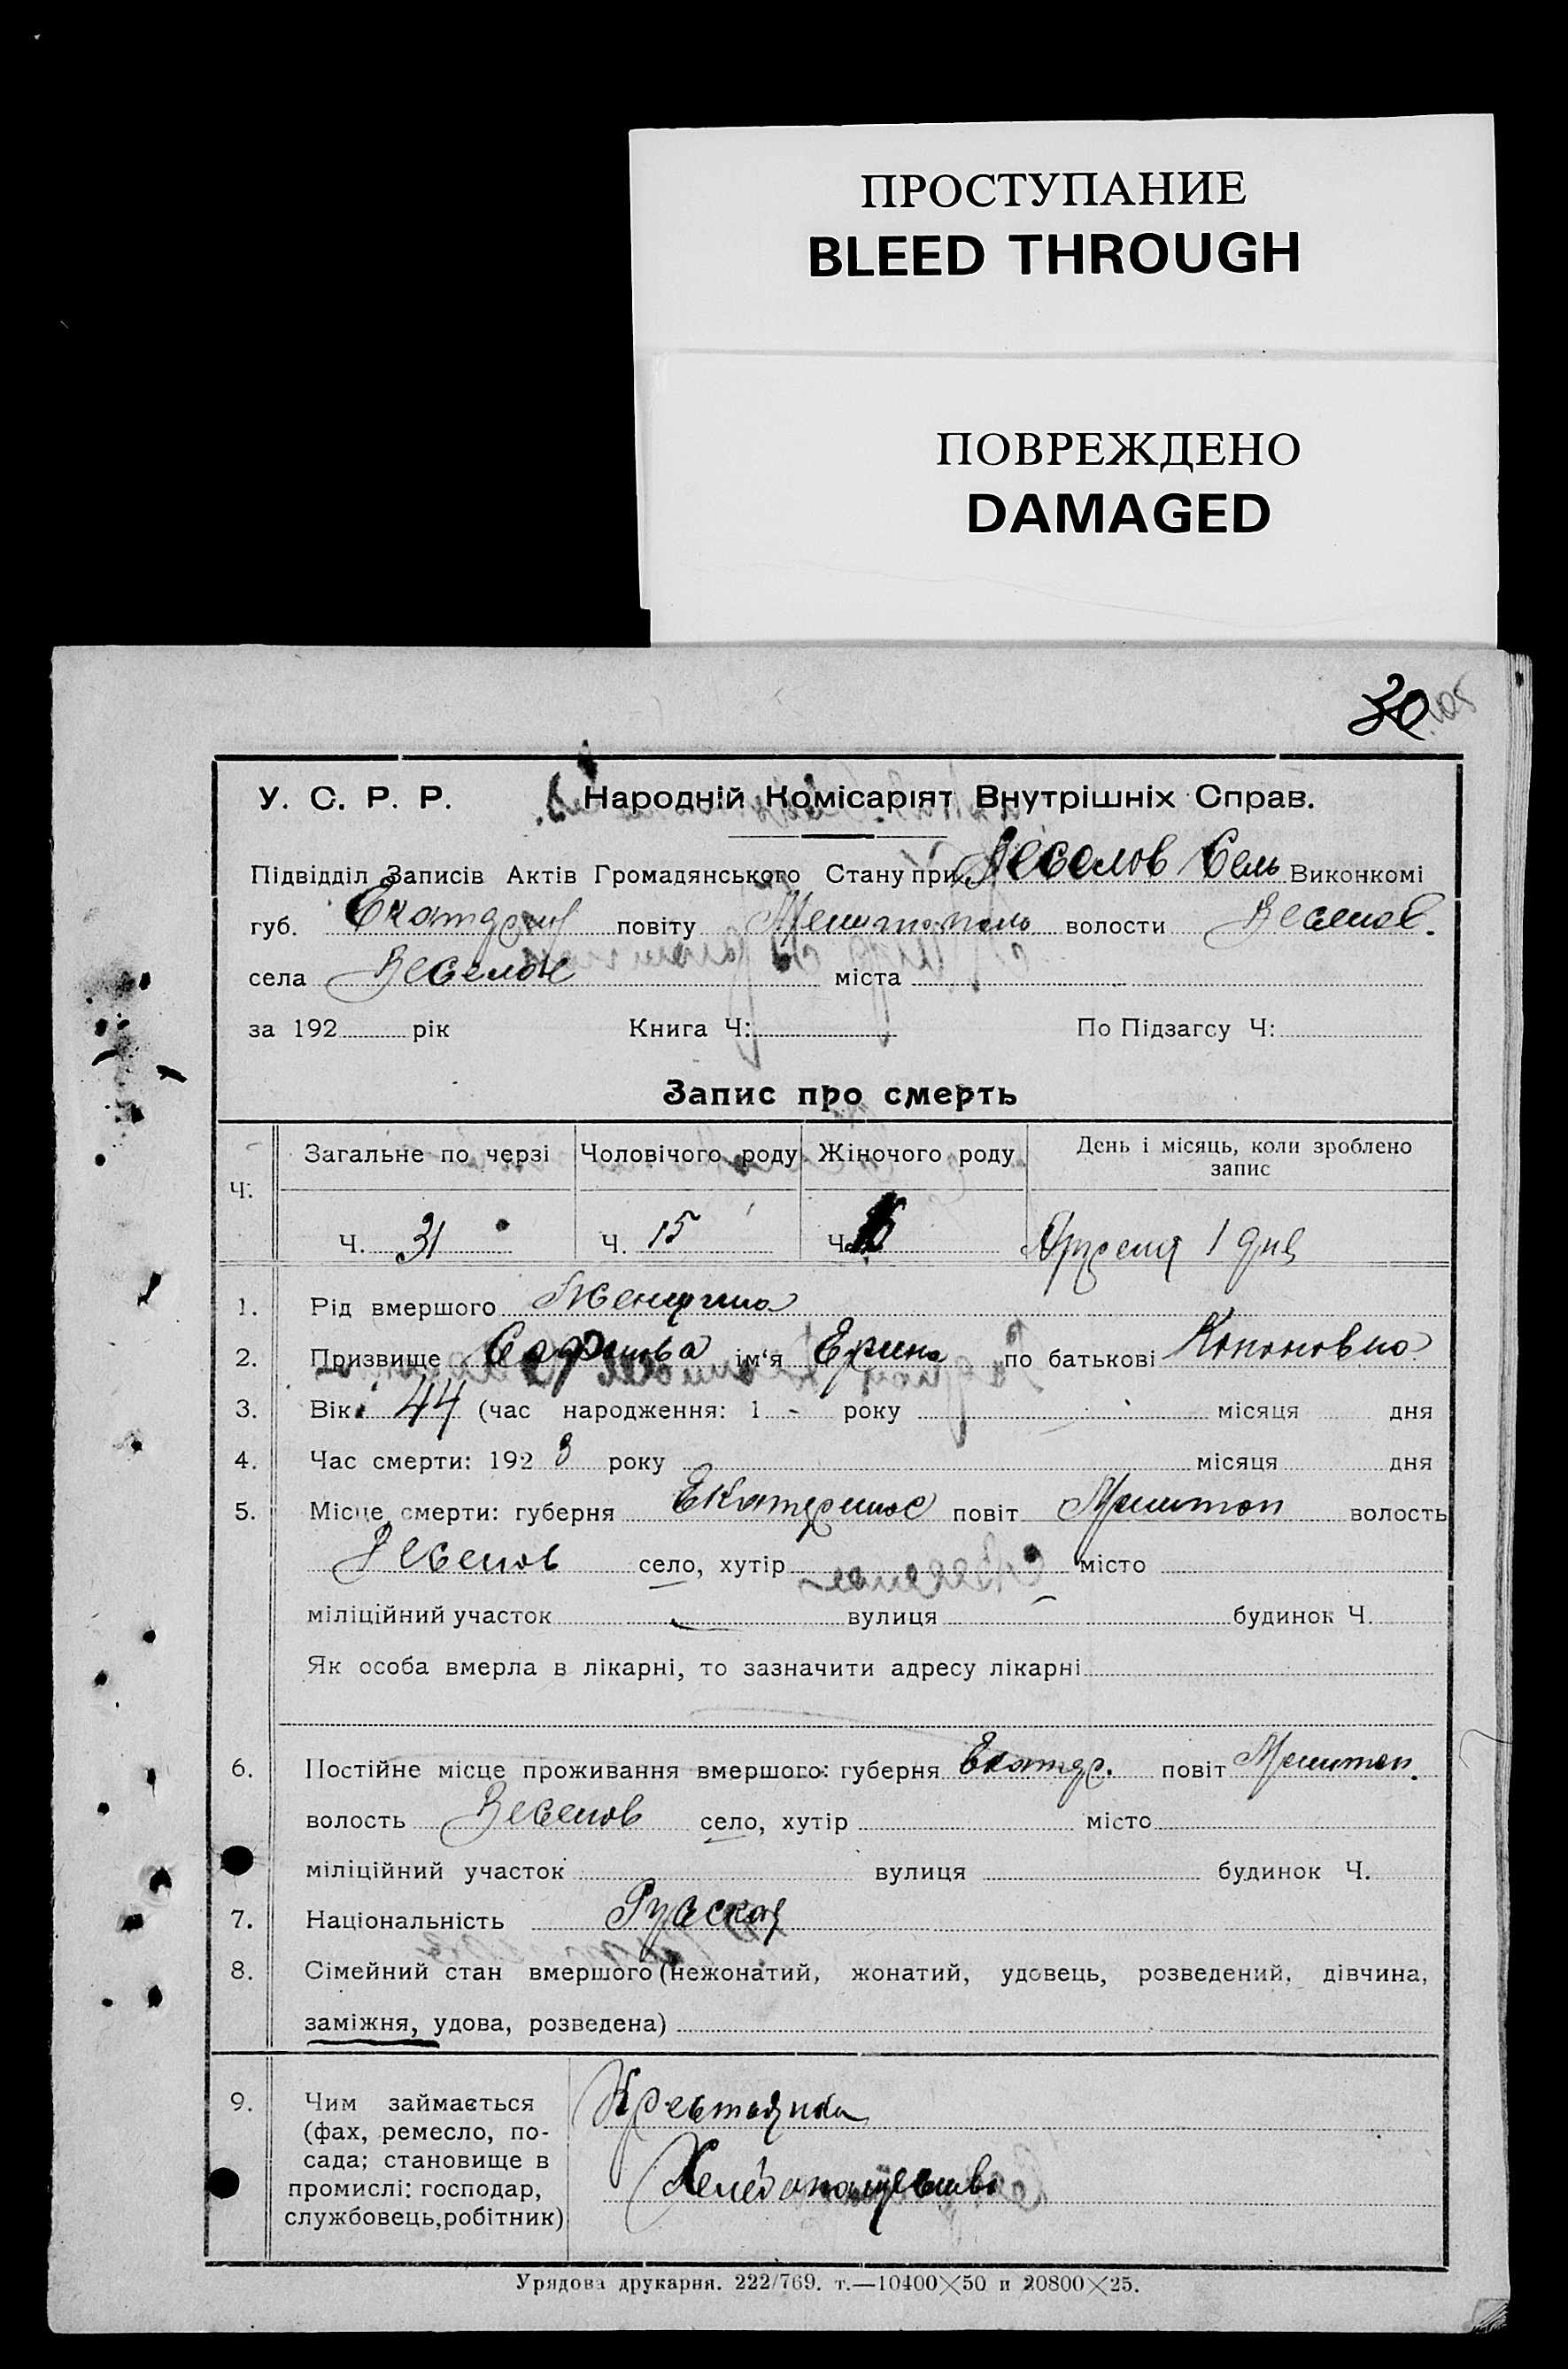 ПРОСТУПАНИЕ
BLEED THROUGH
ПОВРЕЖДЕНО
DAMAGED
30
У. С. Р. Р. Народній Комісаріят Внутрішніх Справ.
Підвідділ Записів Актів Громадянського Стану при Веселов Сель Виконкомі
губ. Екатерин повіту Мелитополь волости Веселов.
села Веселое міста
за 192 рік Книга Ч: По Підзагсу Ч:
Запис про смерть
Ч. Загальне по черзі Чоловічого роду Жіночого роду День і місяць, коли зроблено
запис
Ч. 31 Ч. 15 Ч. 16 Апреля 1 дня
1. Рід вмершого Женщина
2. Призвище ім‘я Ерина по батькові Кононовна
3. Вік 44 (час народження: 1 - року місяця дня
4. Час смерти: 192 3 року місяця дня
5. Місце смерти: губерня Екатеринос повіт Мелитоп волость
Веселов село, хутір місто
міліційний участок вулиця будинок Ч.
Як особа вмерла в лікарні, то зазначити адресу лікарні
6. Постійне місце проживання вмершого: губерня Екатер. повіт Мелитоп.
волость Веселов село, хутір місто
міліційний участок вулиця будинок Ч.
7. Національність Русская
8. Сімейний стан вмершого (нежонатий, жонатий, удовець, розведений, дівчина,
заміжня, удова, розведена)
9. Чим займається Крестьянка
(фах, ремесло, по-
сада; становище в
промислі: господар, Хлебопашество
службовець,робітник)
Урядова друкарня. 222/769. т.—10400×50 и 20800×25.